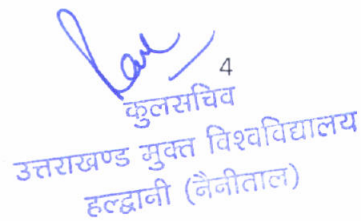 4
कुलसचिव
उत्तराखण्ड मुक्त विश्वविद्यालय
हल्द्वानी (नैनीताल)